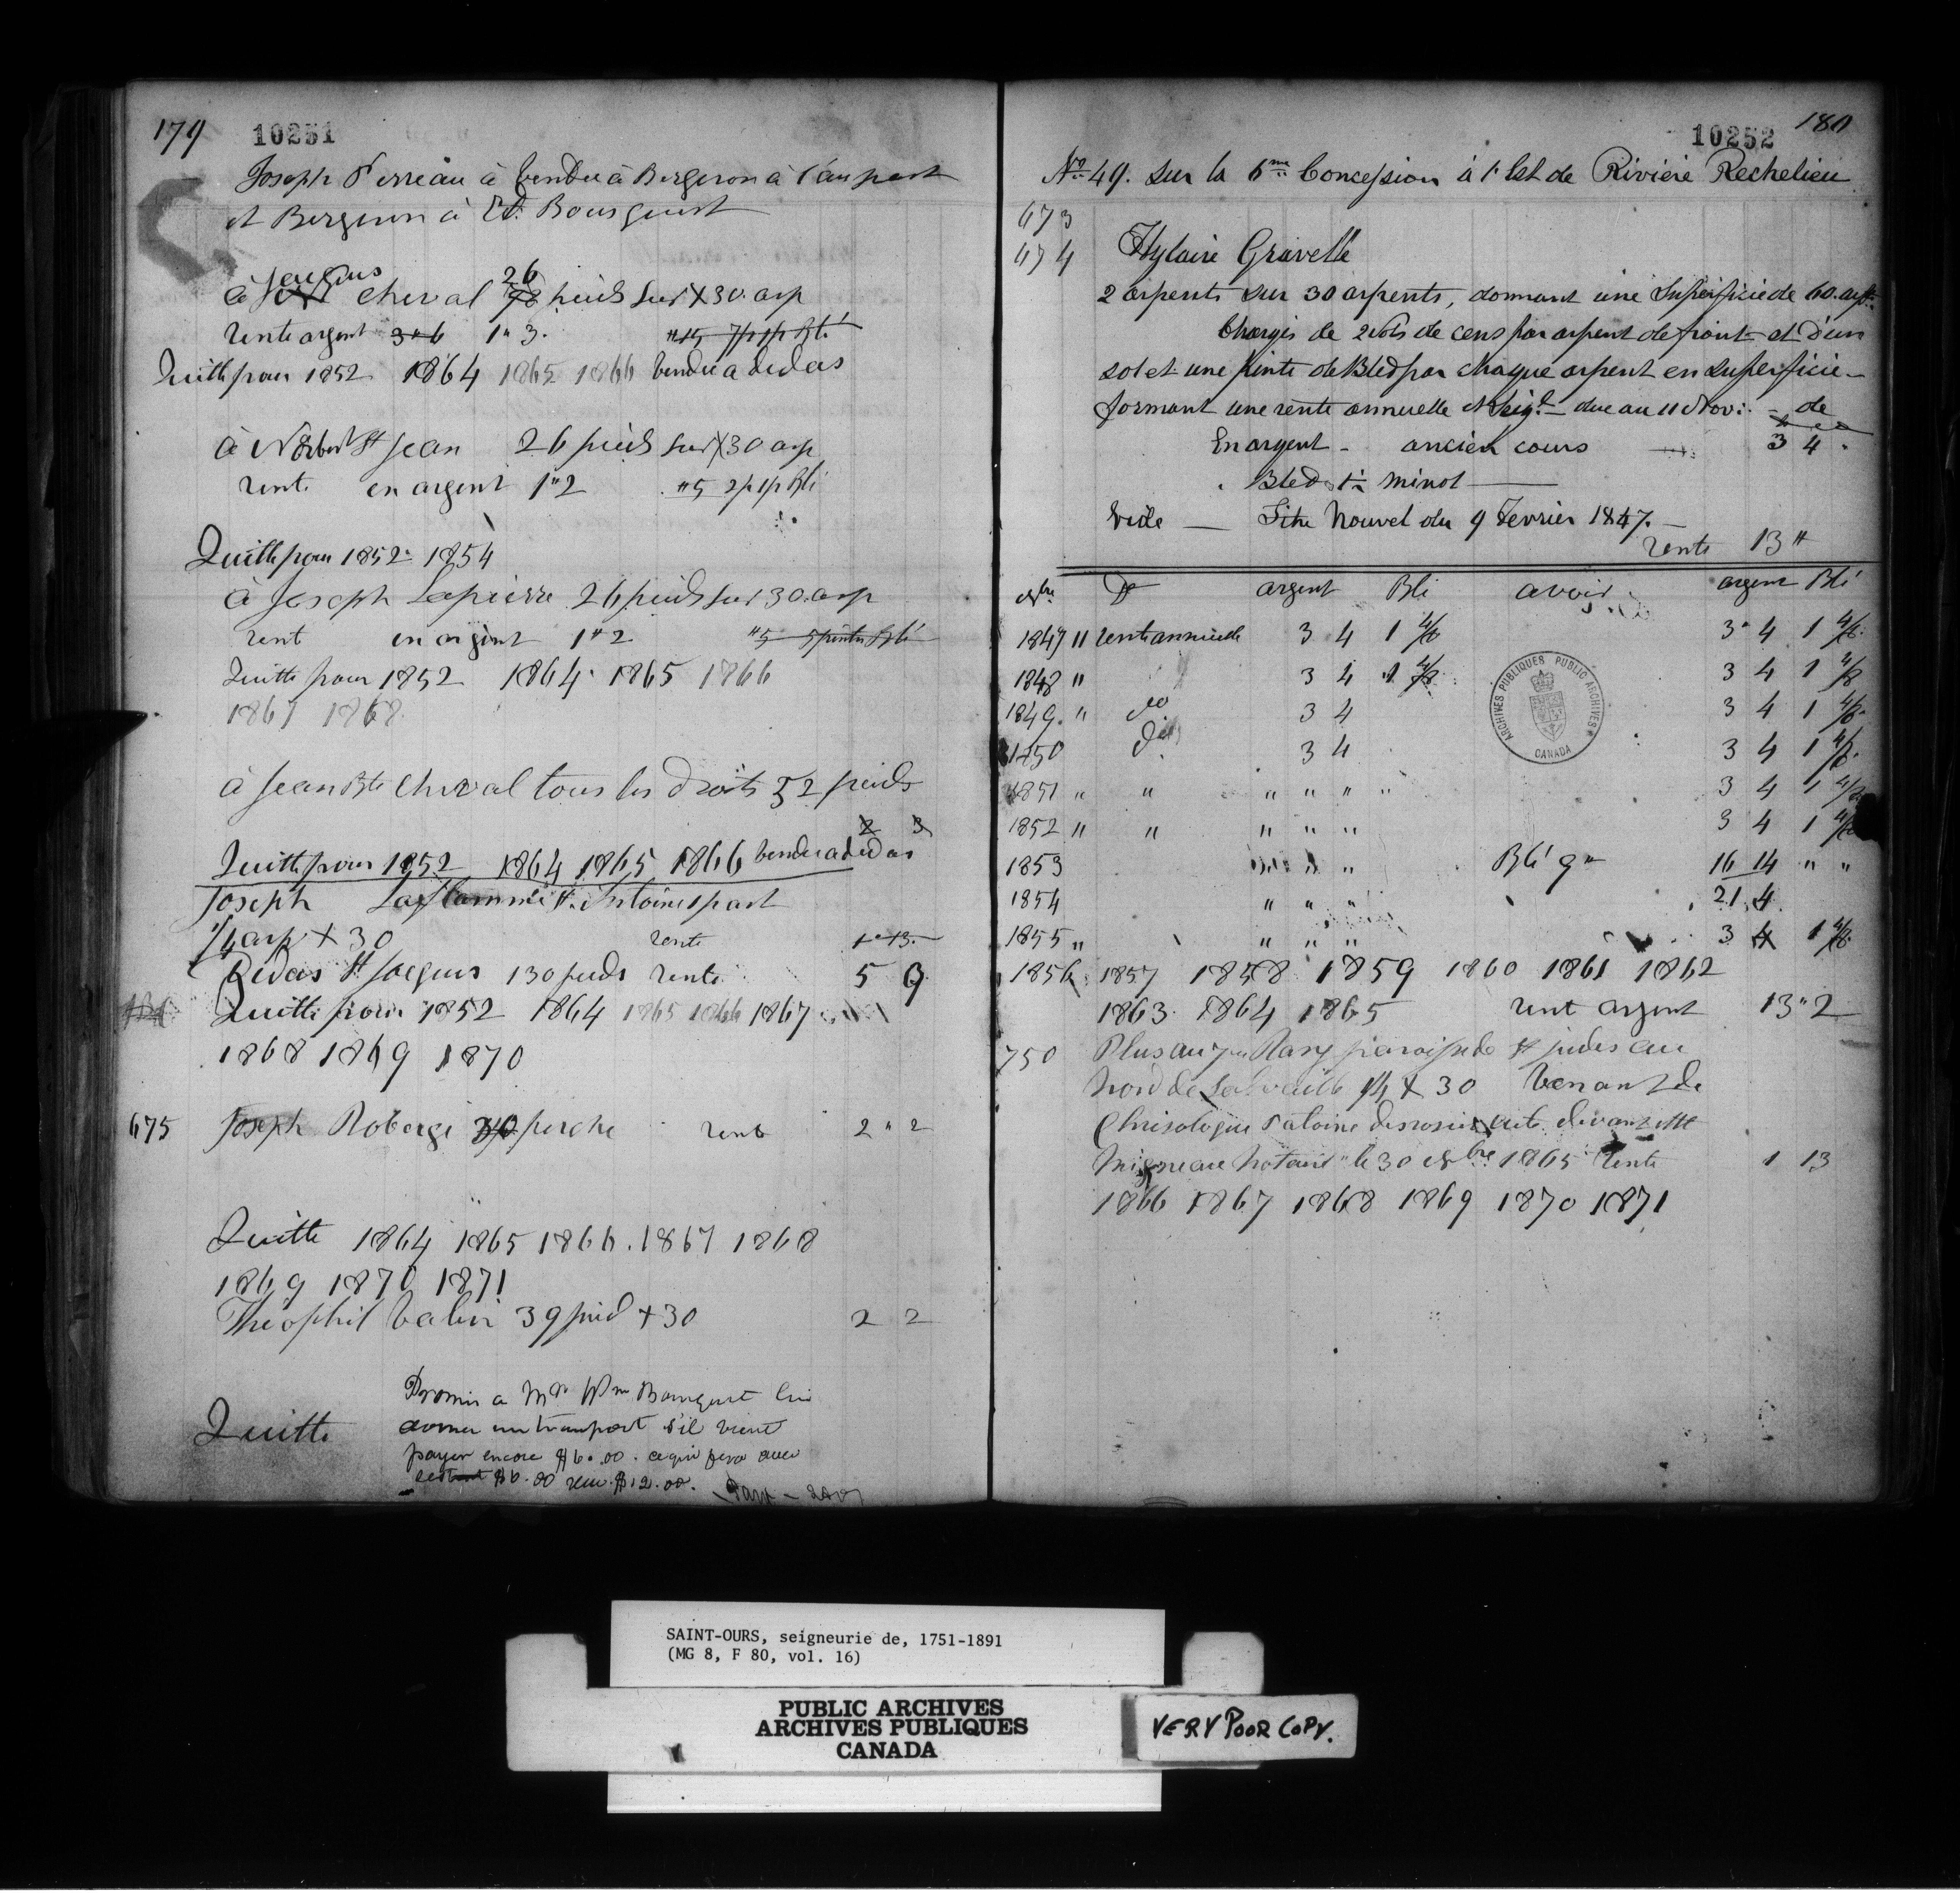 179 10251
Joseph Perreau à Vendu à Bergeron à l'au part
et Bergeron à Ed. Bousquet
Jacques
à cheval 26 pieds sur X 30 arp
rente argent 3"6 1"3.
Quitte pour 1852 1864 1865 1866 Vendu a dedas
à Norbert St Jean 26 pieds sur X 30 arp
rente en argent 1"2
Quitte pour 1852 1854
à Joseph Lapierre 26 pieds sur 30 arp
rent en argent 1"2 "5 5 pintes Blé
Quitte pour 1852 1864 1865 1866
1867 1868
à Jean Bte Cheval tous les droits 52 pieds
2 3
Quitte pour 1852 1864 1865 1866 Vendu a dedas
Joseph Laflamme St. Antoine part
1/4 arp X 30 rente 1"13
Dedas St Jacques 130 pieds rente 5 9
Quitte pour 1852 1864 1865 1866 1867
1868 1869 1870
675 Joseph Roberge perche rente 2"2
Quitte 1864 1865 1866. 1867 1868
1869 1870 1871
Théophil Valin 39 pied + 30 2 2
Promis a Mr Wm Bousquet lui
donner un transport s'il vient
Quitte
payer encore $6.00. ce qui fera avec
$6.00 reçu $12.00.
10252 180
No. 49. Sur la 6me Concession à l'Est de Rivière Rechelieu
673
674 Hylaire Gravelle
2 arpents sur 30 arpents, donnant une Superficie de 60. arpts.
Chargés de 2 sols de cens par arpent de front et d'un
sol et une pinte de Bled par chaque arpent en superficie
formant une rente annuelle & Seigl. due au 11 Novr. de
En argent - ancien cours 3 4.
Bled 1 1/2 minot
Vide Titre Nouvel du 9 Fevrier 1847.
rente 13"
9bre Dt argent Blé avoir argent Blé
1847 11 rente annuelle 3 4 1 4/8 3" 4 1 4/8
1848 " 3 4 1 4/8 3 4 1 4/8
1849. " do. 3 4 3 4 1 4/8
1850 do. 3 4 3 4 1 4/8
1851 " " " " " " 3 4 1 4/8
1852 " " " " " 3 4 1 4/8
1853 " " " Blé 9" 16 14 " "
1854 " " " 21 4
1855 " " " " 3 4 1 4/8
1856 1857 1858 1859 1860 1861 1862
1863 1864 1865 rent argent 13"2
750 Plus au 7me Rang paroisse de St judes au
Nord de 1/4 X 30 Venant de
Chrisologue Patoine acte devant Mtt
Migneau Notaire le 30 8bre 1865 rente 1 13
1866 1867 1868 1869 1870 1871
ARCHIVES PUBLIQUES PUBLIC ARCHIVES
CANADA
SAINT-OURS, seigneurie de, 1751-1891
(MG 8, F 80, vol. 16)
PUBLIC ARCHIVES
ARCHIVES PUBLIQUES
CANADA
VERY POOR COPY.